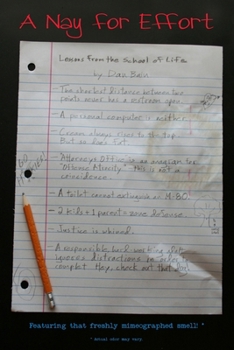 A Nay for Effort
Lessons from the School of Life
by Dan Bain
- The shortest distance between two
points never has a restroom stop.
- A personal computer is neither.
- Cream always rises to the top.
But so does fat.
- "Attorney's Office" is an anagram for
This is not a
coincidence.
- A toilet cannot extinguish an M-80.
- 2 kids + 1 parent = zone defense.
- Justice is whined.
- A responsible, hard working adult
ignores distractions in order to
complet Hey, check out that
Featuring that freshly mimeographed smell! *
* Actual odor may vary